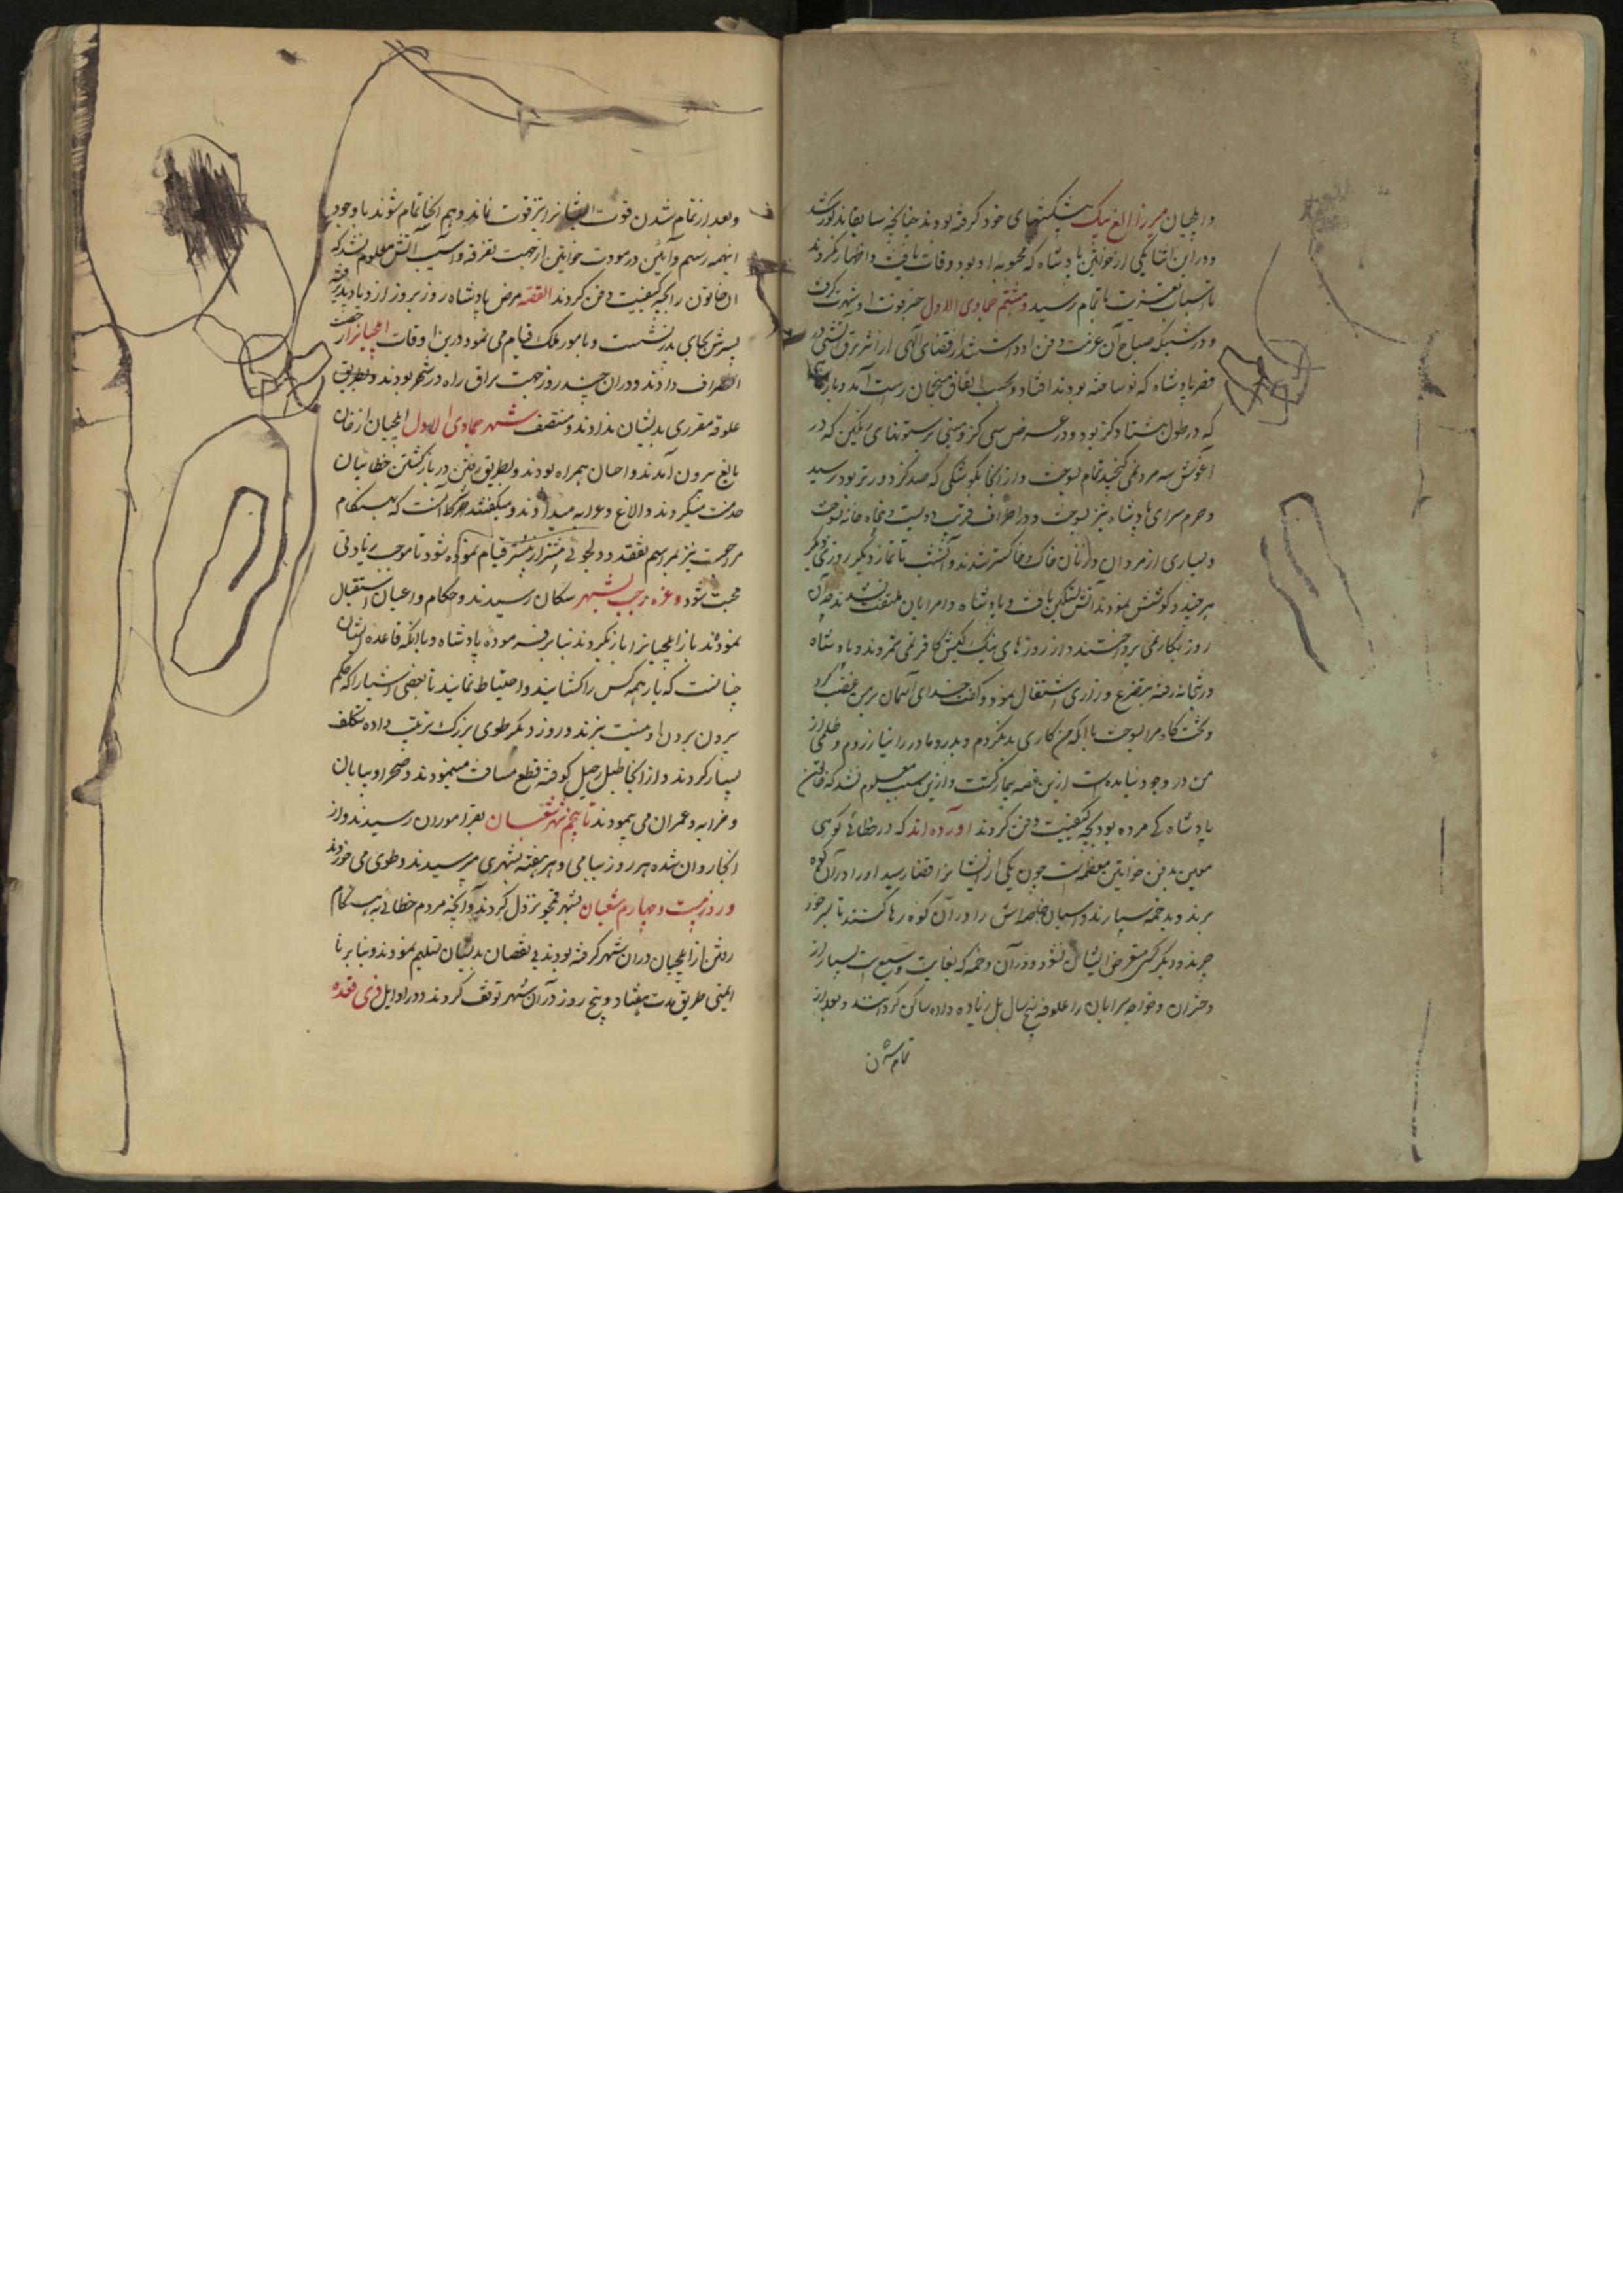 و ایلچیان میرزا الغ بیک پیشکشهای خود گرفته بودند چنانچه سابقا مذکور شد
و در این اثنا یکی از خواتین پادشاه که محبوبه او بود وفات یافت و اظهار نکردند
تا اسباب تعزیت باتمام رسید و هشتم جمادی الاول خبر فوت او شهرت گرفت
و در شبی که صباح آن عزیمت دفن او داشتند از قضای الهی از اثر برق آتشی در
قصر پادشاه که نو ساخته بودند افتاد و بحسب اتفاق منجمان راست آمد و بارگاه
که در طول هشتاد گز بود و در عرض سی گز و مبنی بر ستونهای رنگین که در
آغوش سه مرد نمی گنجید تمام بسوخت و از آنجا بکوشکی که صد گز دورتر بود رسید
و حرم سرای پادشاه نیز بسوخت و در اطراف قریب دویست و پنجاه خانه بسوخت
و بسیاری از مردان و زنان خاک و خاکستر شدند و آنشب تا نماز دیگر روز دیگر
هرچند کوشش نمودند آتش تسکین نیافت و پادشاه و امرا بآن ملتفت نشدند چه آن
روز بکار نمی پرداختند و از روزهای نیک کیش کافر می شمردند و پادشاه
در بتخانه رفته بتضرع و زاری اشتغال نمود و گفت خدای آسمان بر من غضب کرد
و تخت گاه مرا بسوخت با آنکه من کاری بد نکردم و پدر و مادر را نیازردم و ظلمی از
من در وجود نیامده است ازین غصه بیمار گشت و ازین سبب معلوم نشد که خاتون
پادشاه کی مرده بود بچه کیفیت دفن کردند آورده اند که در خطائی کوهی
معین بدفن خواتین معظمه است چون یکی از ایشانرا قضا رسید او را در آن کوه
برند و بدخمه سپارند و اسبان خاصه اش را در آن کوه رها کنند تا بسر خود
چرند و دیگر کسی متعرض ایشان نشود و در آن دخمه که بغایت وسیع است بسیار از
دختران و خواجه سرایان را علوفه پنج سال بل زیاده داده ساکن گردانند و بعد از
تمام شدن
و بعد از تمام شدن قوت ایشانرا نیز قوت نماند و هم آنجا تمام شوند با وجود
اینهمه رسم و آئین در موت خواتین از جهت تفرقه و آسیب آتش معلوم نشد که
آن خاتون را بچه کیفیت دفن کردند القصه مرض پادشاه روز بروز ازدیاد پذیرفته
پسرش بجای پدر نشست و بامور ملک قیام می نمود درین اوقات ایلچیانرا رخصت
انصراف دادند و در آن چند روز جهت یراق راه در شهر بودند و بطریق
علوفه مقرری بدیشان ندادند و منتصف شهر جمادی الاول ایلچیان از خان
بالیغ بیرون آمدند و احسان همراه بودند و بطریق رفتن در بازگشتن خطائیان
خدمت میکردند و الاغ و عرابه میدادند و میگفتند حکم آنست که بهنگام
مراجعت نیز بمراسم تفقد و دلجوئی بیشتر از پیشتر قیام نموده شود تا موجب زیادتی
محبت شود و غره رجب بشهر سکان رسیدند و حکام و اعیان استقبال
نمودند بار ایلچیانرا باز نکردند بنا بر فرموده پادشاه و با آنکه قاعده ایشان
چنانست که بار همه کس را گشایند و احتیاط نمایند تا بعضی اشیا را که حکم
بیرون بردن او نیست نبرند و روز دیگر طوی بزرگ ترتیب داده تکلف
بسیار کردند و از آنجا طبل رحیل کوفته قطع مسافت مینمودند و صحرا و بیابان
و خرابه و عمران می پیمودند تا پنجم شهر شعبان بقراموران رسیدند و از
آنجا روان شده هر روز بیامی و هر هفته بشهری میرسیدند و طوی می خوردند
و روز بیست و چهارم شعبان بشهر قمجو نزول کردند و آنچه مردم خطائی بهنگام
رفتن از ایلچیان در آن شهر گرفته بودند بی نقصان بدیشان تسلیم نمودند و بنا بر نا
ایمنی طریق مدت هفتاد و پنج روز در آن شهر توقف کردند و در اوایل ذی قعده